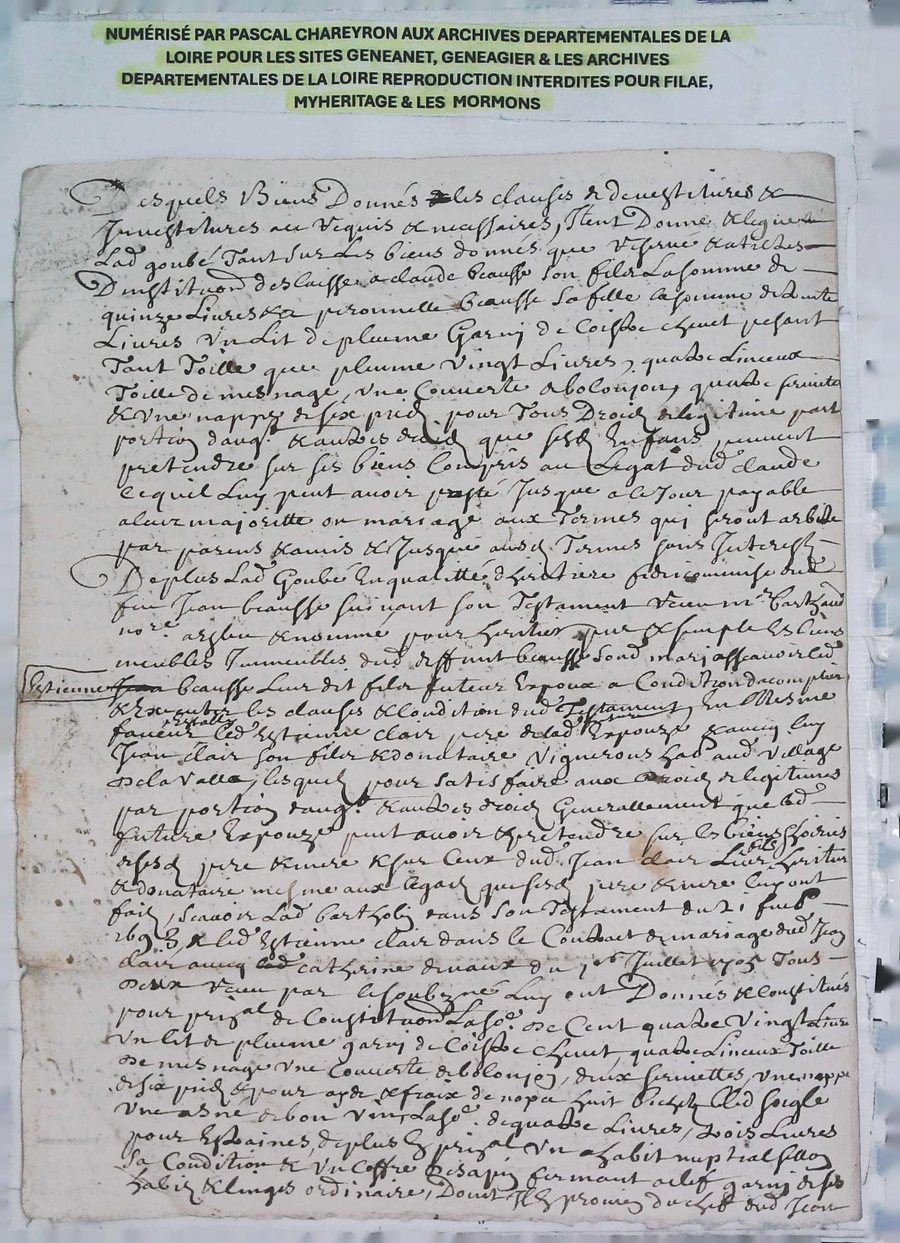 NUMÉRISÉ PAR PASCAL CHAREYRON AUX ARCHIVES DEPARTEMENTALES DE LA
LOIRE POUR LES SITES GENEANET, GENEAGIER & LES ARCHIVES
DEPARTEMENTALES DE LA LOIRE REPRODUCTION INTERDITES POUR FILAE,
MYHERITAGE & LES MORMONS
Desquels Biens Donnés les clauses de devestitures &
Jnvestitures au requis & nessaires, Jtent Donne & legue
Lad goubé Tant sur les biens donnés que reserve
Dinstitution deslaisse a claude beausse son filz La somme de
quinze Livres & a peronnelle beausse sa fille la somme de
Livres Un Lit de plume Garnj de Coistre Chevet pesant
Tant Toille que plume Vingt Livres, quatre Linceux
Toille de mesnage, une Couverte de bolonjon, quatre
& Une nappe de six pied pour Tous Droid de legitime part
portion daug. & autres droid que sesd Enfans peuvent
pretendre sur ses biens Compris au Legat dud claude
lequel Luy peut avoir Jusque a le Jour payable
a leur majoritte ou mariage aux Termes quj seront arbitre
par parens & amis & Jusque ausd Termes sans Jnterestz
De plus Lad Goubé En quallitté dheritiere fideicommise dud
feu Jean beausse suivant son Testament receu mr Barthaud
nore a esleu & nomme pour heritier pur & simple Es biens
meubles Jmmeubles dud deffunt beausse Sond mari assavoir led
Estienne beausse Leur dit filz futeur Expoux a Condition dacomplir
& Executer les clauses & Condition dud Testament, En Mesme
faveur led Estienne clair pere de lad Expouze & aveq luy
Jean clair son filz & donataire Vignerons hab and Village
de la Valla, lesquelz pour satisfaire aux Droid de legitimes
part portion daug. & autres droid Generallement que lad
future Expouze peut avoir & pretendre sur les biens & hoiries
desd pere & mere & sur Ceux dud Jean clair Leur filz heritier
& donataire mesme aux legaa que sesd pere & mere luy ont
fait, Scavoir Lad dans son Testament du 21
169 & led Estienne clair dans le Contract de mariage dud Jean
clair aveq catherine devaux du Juillet 1705 Tous
deux receu par le soubzné Luy ont Donnés & Constitués
pour de Constitution La so. de Cent quatre Vingt Livre
Un lit de plume garnj de Coistre Chevet, quatre Linceux Toille
de mesnage Une Couverte de bolonjon, deux serviettes, Une nappe
de six pied & pour ayde & fraix de nopce huit bichetz bled seigle
Une asné de bon Vin, La so. de quatre Livres, trois Livres
pour Estraines, de plus Un habit nuptial sellon
sa Condition & Un Coffre de sapin fermant a clef garnj de ses
habitz & linges ordinaire, Dont du chef dud Jean